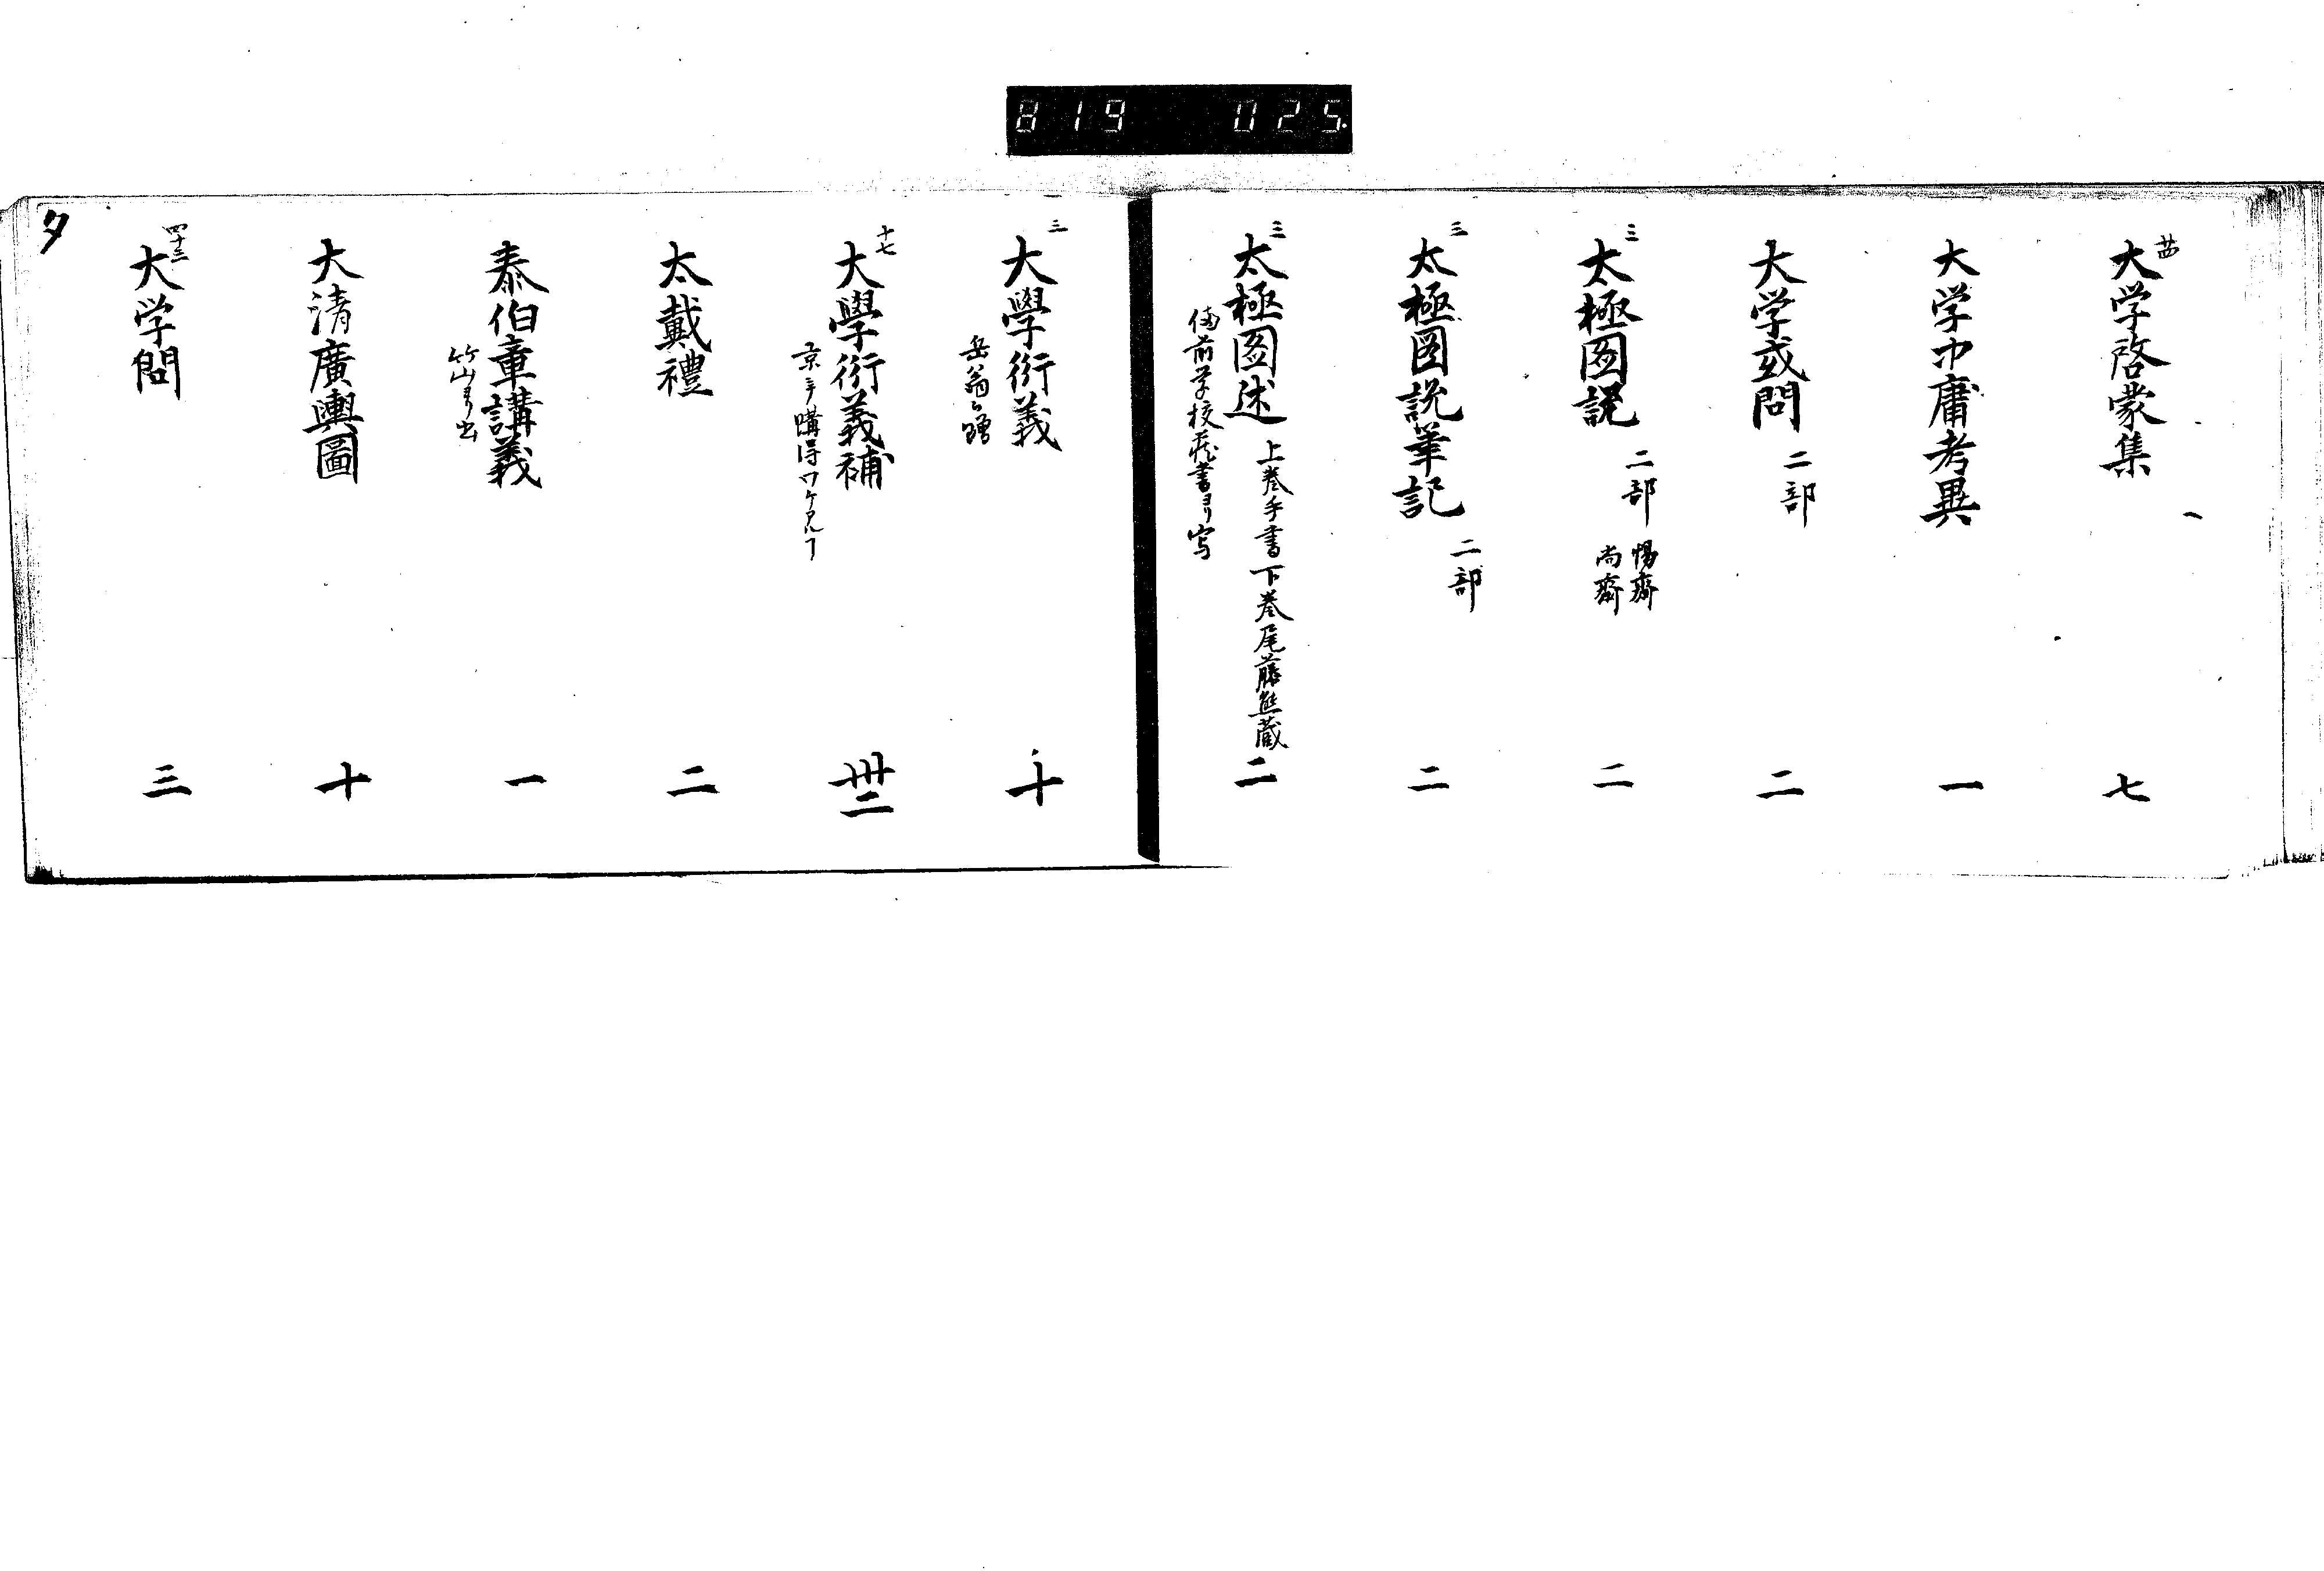 819 025.
大学啓蒙集 七
大学中庸考異 一
大学或問 二部 二
三
太極図説 二部 惕齋 尚齋 二
三
太極図説筆記 二部 二
三
太極図述 上巻手書下巻尾藤熊蔵 二
備前学校蔵書ヨリ写
三
大學衍義 十
岳翁
十七
大學衍義補 卅二
京ニテ購得ワケアルヿ
太戴禮 二
泰伯章講義 一
竹山ヨリ出
大清廣輿圖 十
四十三
大学問 三
タ